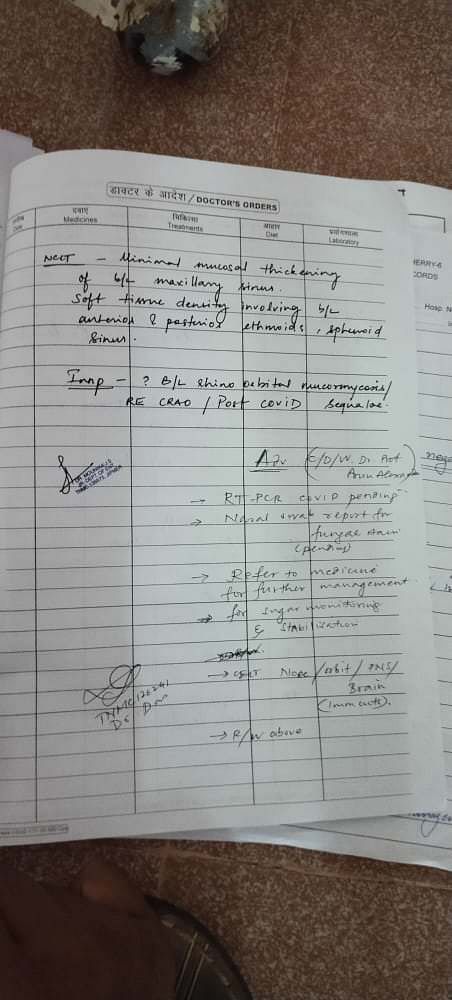 डाक्टर के आदेश / DOCTOR'S ORDERS
तारीख
Date
दवाएं
Medicines
चिकित्सा
Treatments
आहार
Diet
प्रयोगशाला
Laboratory
NCCT - Minimal mucosal thickening
of b/L maxillary sinus.
Soft tissue density involving b/L
anterior & posterior ethmoids, sphenoid
sinus.
Imp - ? B/L Rhino orbital mucormycosis/
RE CRAO / Post COVID Sequalae.
Adv (C/D/W. Dr Prof
Arun
→ RT-PCR COVID pending
→ Nasal swab report for
fungal stain
(pending)
→ Refer to medicine
for further management
→ for sugar monitoring
& Stabilisation
→ CECT Nose/orbit/PNS/
Brain
(1mm cuts).
→ R/W above
HERRY-6
CORDS
Hosp. N